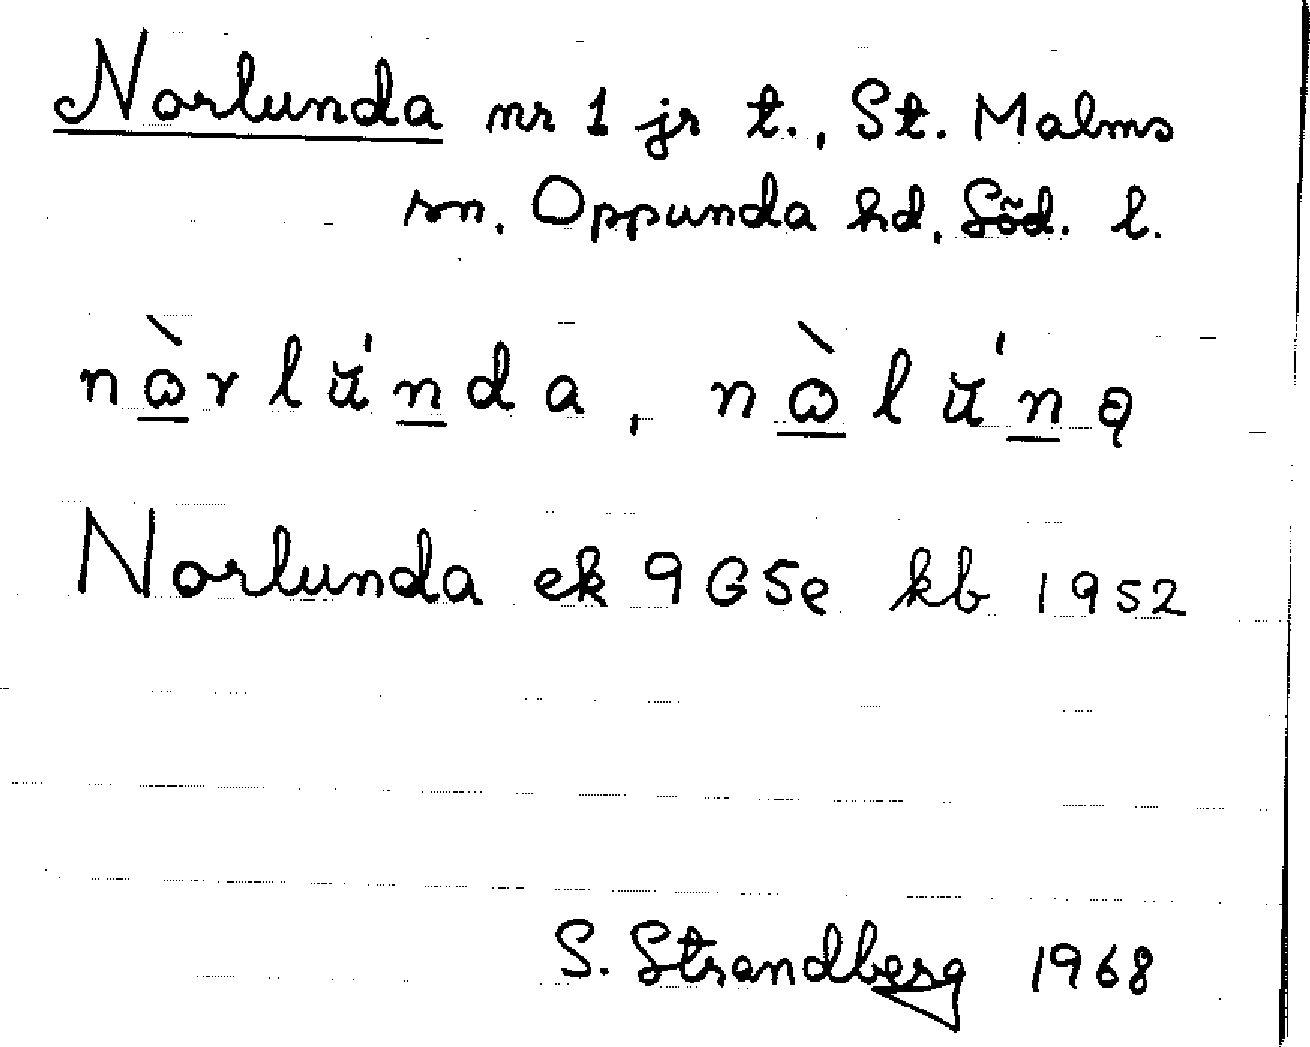 Norlunda nr 1 jr t., St. Malms
sn. Oppunda hd, Söd. l.
nɷ̀rlu̽́nda, nɷ̀lu̽́ną
Norlunda ek 9G5e kb 1952
S. Strandberg 1968